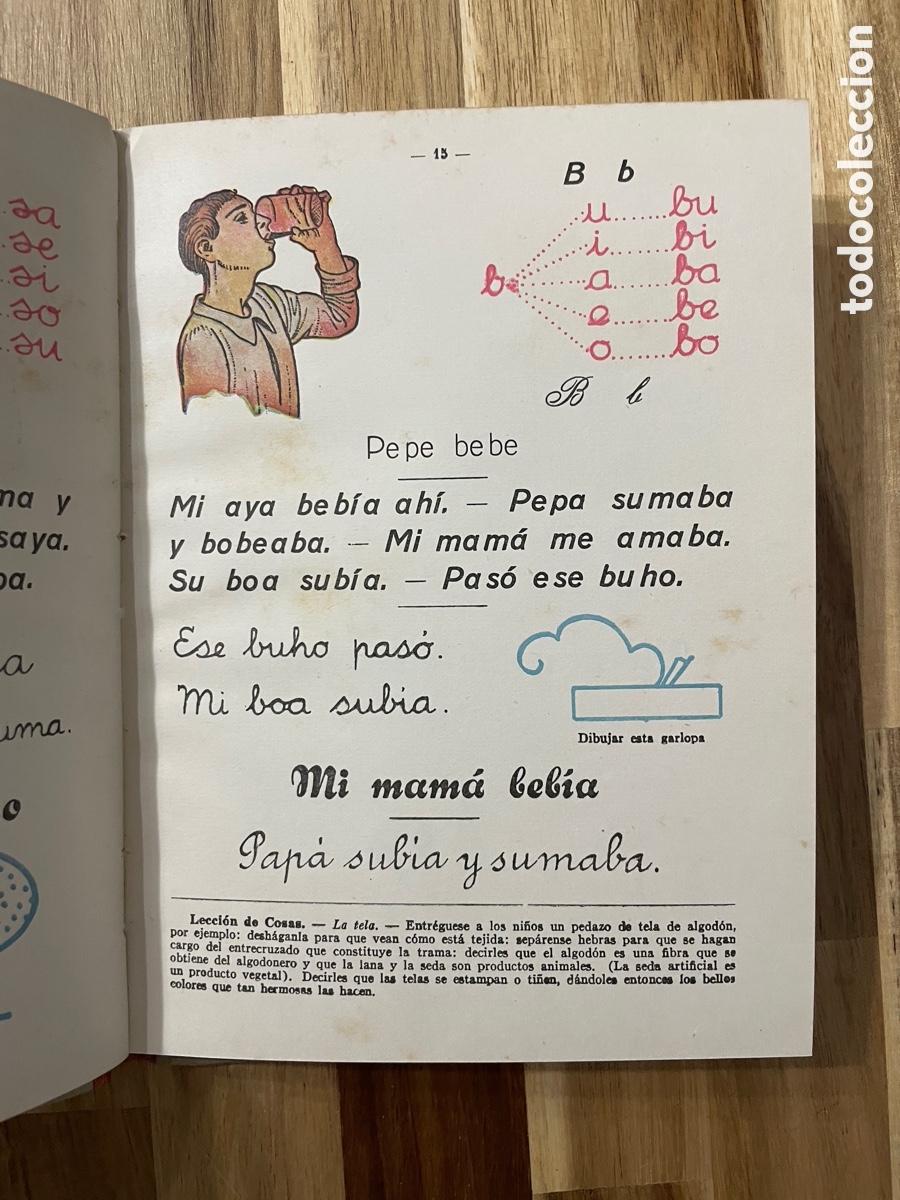 todocoleccion
— 15 —
B b
u bu
i bi
b a ba
e be
o bo
B b
Pepe bebe
Mi aya bebía ahí. — Pepa sumaba
y bobeaba. — Mi mamá me amaba.
Su boa subía. — Pasó ese buho.
Ese buho pasó.
Mi boa subía.
Dibujar esta garlopa
Mi mamá bebía
Papá subía y sumaba.
Lección de Cosas. — La tela. — Entréguese a los niños un pedazo de tela de algodón,
por ejemplo: desháganla para que vean cómo está tejida: sepárense hebras para que se hagan
cargo del entrecruzado que constituye la trama: decirles que el algodón es una fibra que se
obtiene del algodonero y que la lana y la seda son productos animales. (La seda artificial es
un producto vegetal). Decirles que las telas se estampan o tiñen, dándoles entonces los bellos
colores que tan hermosas las hacen.
y
saya.
a
uma.
o